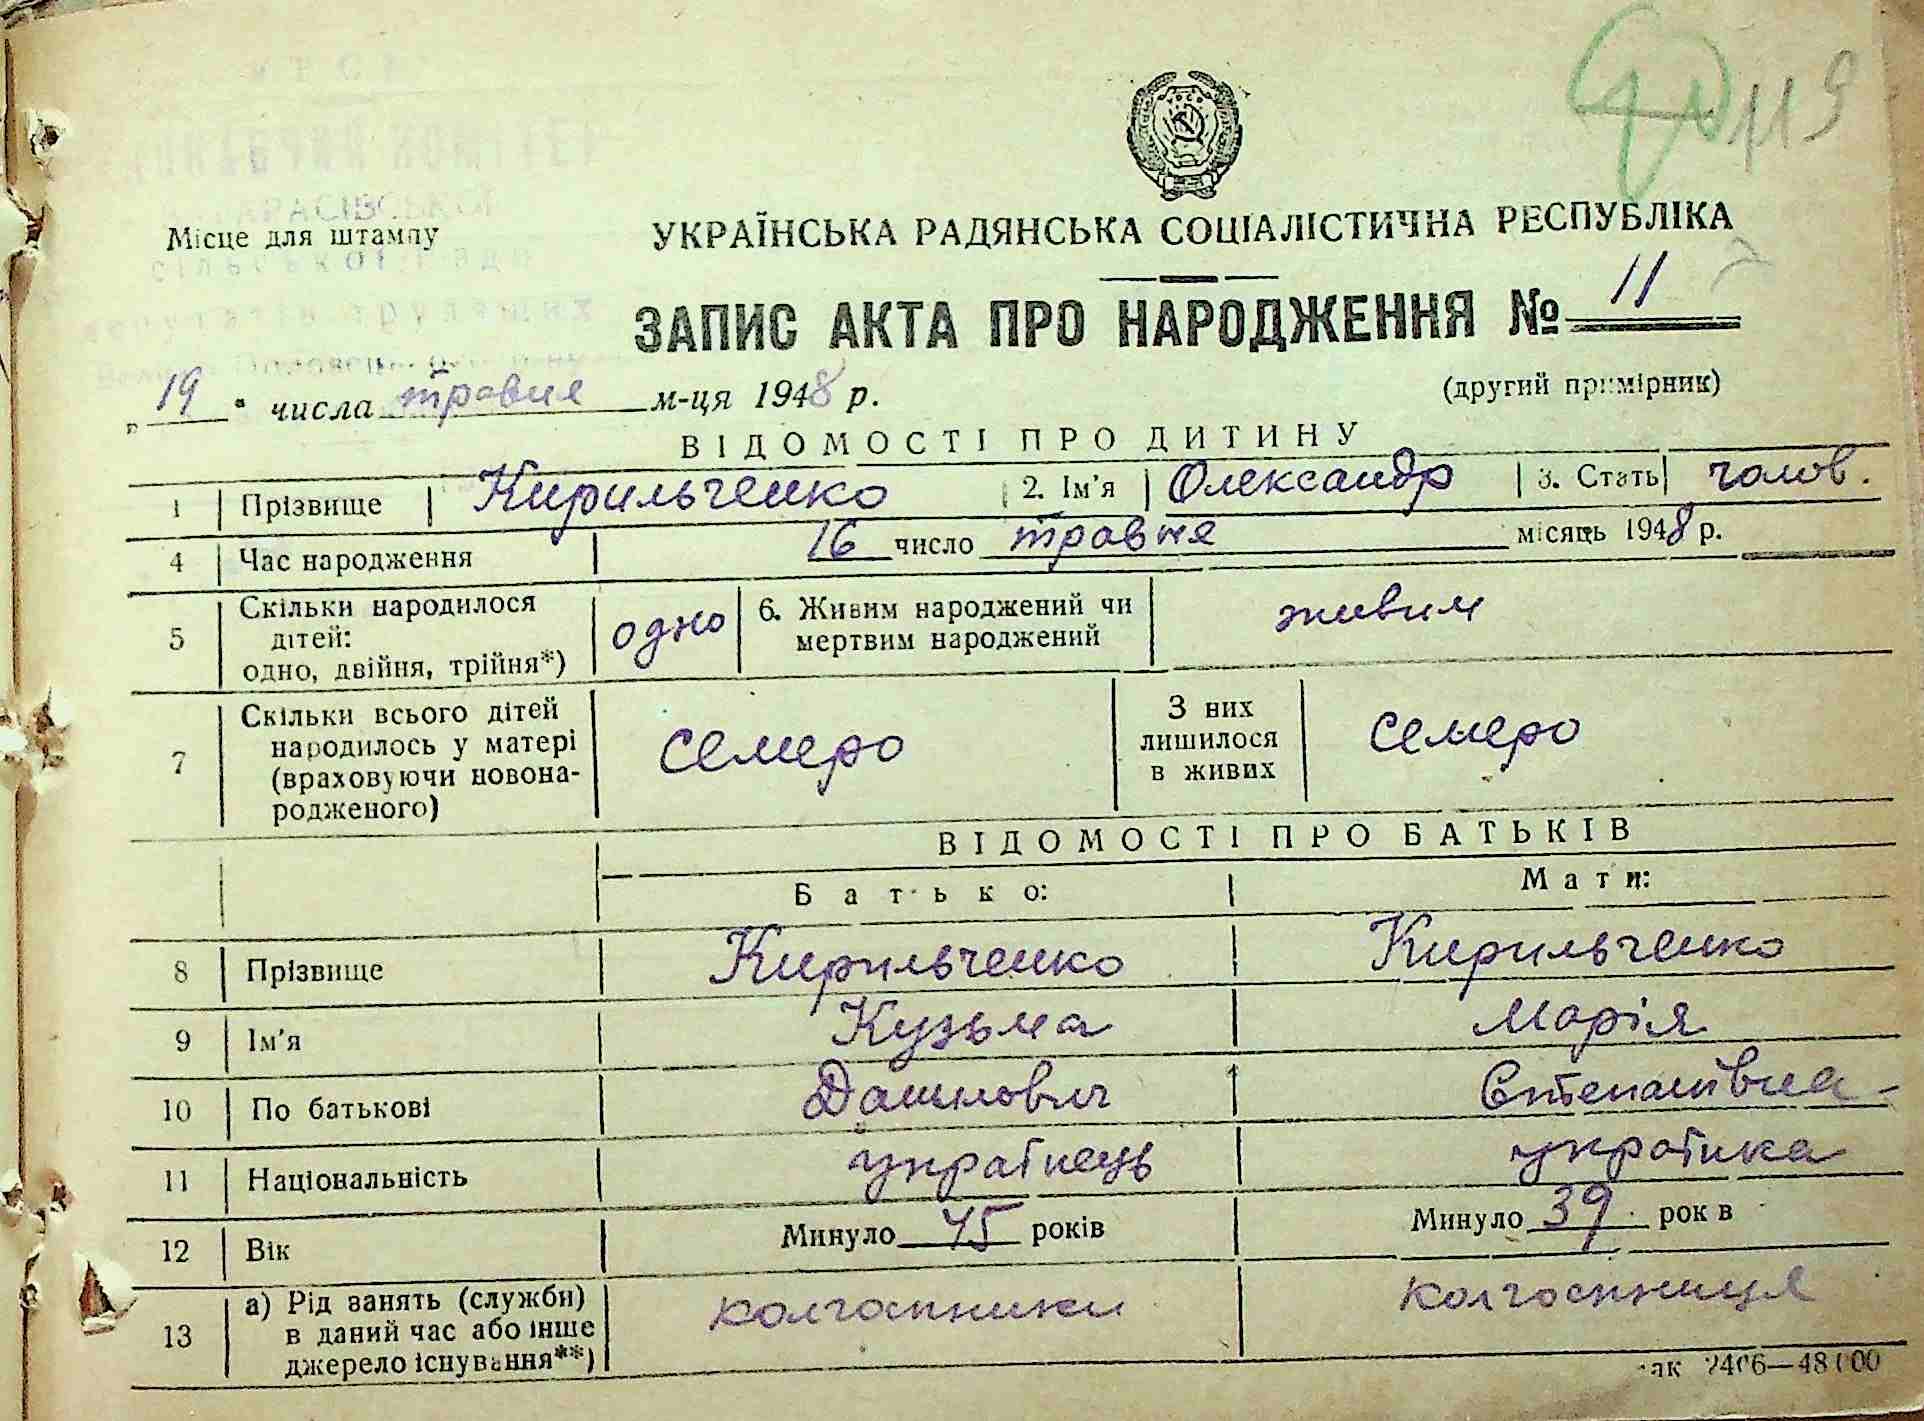 119
Місце для штампу
УКРАЇНСЬКА РАДЯНСЬКА СОЦІАЛІСТИЧНА РЕСПУБЛІКА
ЗАПИС АКТА ПРО НАРОДЖЕННЯ № 11
(другий примірник)
„19" числа травня м-ця 1948 р.
ВІДОМОСТІ ПРО ДИТИНУ
1 Прізвище Кирильченко 2. Ім'я Олександр 3. Стать чолов.
4 Час народження 16 число травня місяць 1948 р.
5 Скільки народилося дітей: одно, двійня, трійня*) одно 6. Живим народжений чи мертвим народжений живим
7 Скільки всього дітей народилось у матері (враховуючи новонародженого) семеро З них лишилося в живих семеро
ВІДОМОСТІ ПРО БАТЬКІВ
Батько: Мати:
8 Прізвище Кирильченко Кирильченко
9 Ім'я Кузьма Марія
10 По батькові Степанівна
11 Національність українець українка
12 Вік Минуло 45 років Минуло 39 рок в
13 а) Рід занять (служби) в даний час або інше джерело існування**) колгоспники колгоспниця